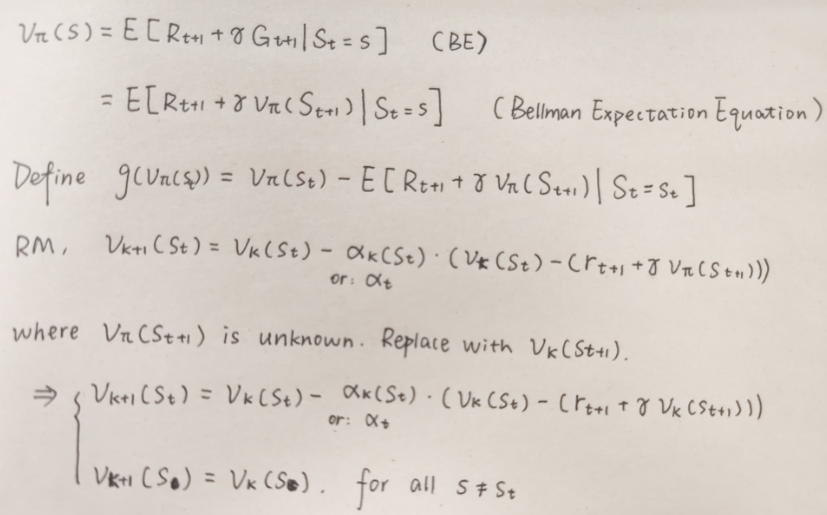 Vπ(s) = E[Rt+1 + γ Gt+1 | St = s] (BE)
= E[Rt+1 + γ Vπ(St+1) | St = s] (Bellman Expectation Equation)
Define g(Vπ(st)) = Vπ(St) − E[Rt+1 + γ Vπ(St+1) | St = st]
RM, Vk+1(St) = Vk(St) − αk(St) · (Vk(St) − (rt+1 + γ Vπ(St+1)))
or: αt
where Vπ(St+1) is unknown. Replace with Vk(St+1).
⇒ { Vk+1(St) = Vk(St) − αk(St) · (Vk(St) − (rt+1 + γ Vk(St+1)))
or: αt
Vk+1(S) = Vk(S). for all s ≠ st